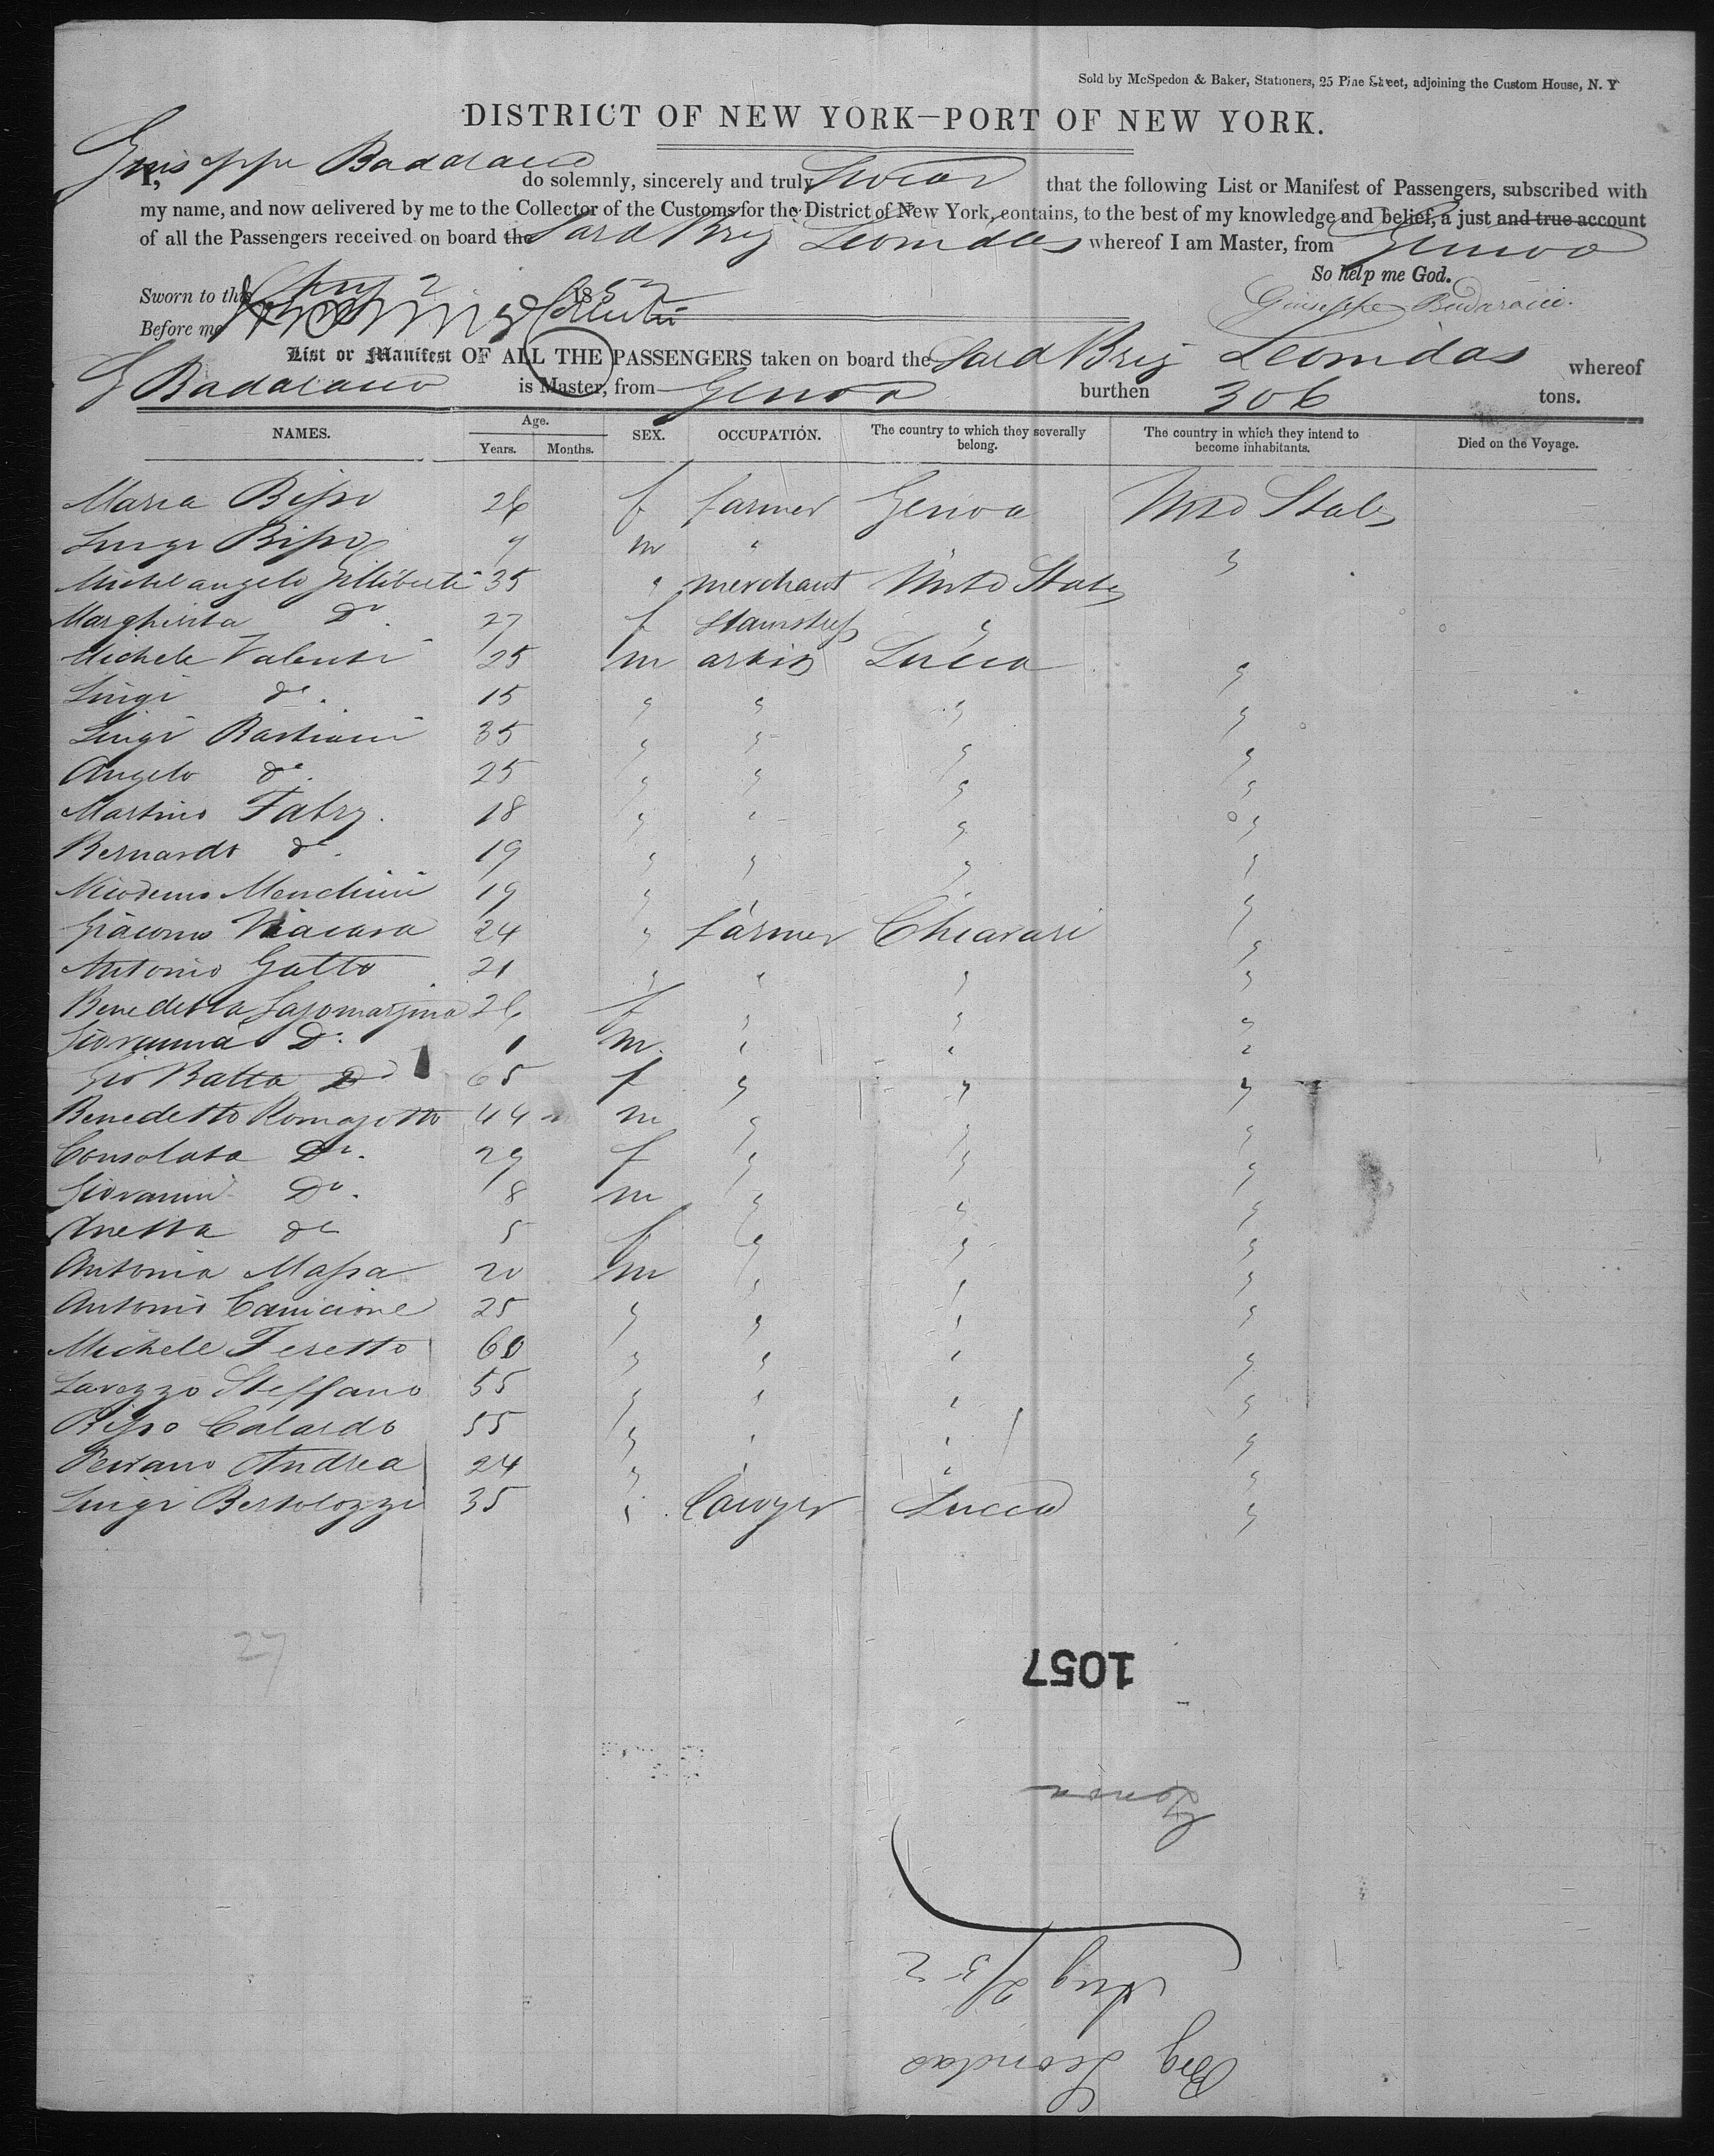 Sold by McSpedon & Baker, Stationers, 25 Pine Street, adjoining the Custom House, N. Y
DISTRICT OF NEW YORK—PORT OF NEW YORK.
I, Giuseppe Badaracco do solemnly, sincerely and truly Swear that the following List or Manifest of Passengers, subscribed with
my name, and now delivered by me to the Collector of the Customs for the District of New York, contains, to the best of my knowledge and belief, a just and true account
of all the Passengers received on board the Sard Brig Leonidas whereof I am Master, from Genoa
So help me God.
Sworn to this Aug 2 1852
Giuseppe Badaracco.
Before me
List or Manifest OF ALL THE PASSENGERS taken on board the Sard Brig Leonidas whereof
G Badaracco is Master, from Genoa burthen 306 tons.
NAMES. Age. Years. Months. SEX. OCCUPATION. The country to which they severally belong. The country in which they intend to become inhabitants. Died on the Voyage.
Maria Bisso 26 f farmer Genoa Unitd States
Luigi Bisso 7 m " "
Michelangelo Gilliberti 35 " merchant Unitd States
Margherita Do. 27 f "
Michele Valenti 25 m artist Lucca "
Luigi do. 15 " " " "
Luigi Bastiani 35 " " " "
Angelo do. 25 " " " "
Martino Fabry. 18 " " " "
Bernardo do. 19 " " " "
Nicodemo Menchini 19 " "
Giacomo Viacava 24 " farmer Chiavari "
Antonio Gatto 21 " " " "
Benedetta Lagomarsino 26 f " " "
Giovanna Do. 1 m. " " "
Gio Batta Do 65 f " " "
Benedetto 44 m " " "
Consolata Do. 29 f " " "
Giovanni Do. 8 m " " "
Anetta do 5 f " " "
Antonia Massa 20 m " " "
Antonio 25 " " " "
Michele Feretto 60 " " " "
Lavezzo Steffano 55 " " " "
Bisso Calardo 55 " " " "
Andrea 24 " " " "
Luigi Bertolozzi 35 " Lawyer Lucca "
27
1057
Genoa
Aug 2/52
Brig Leonidas